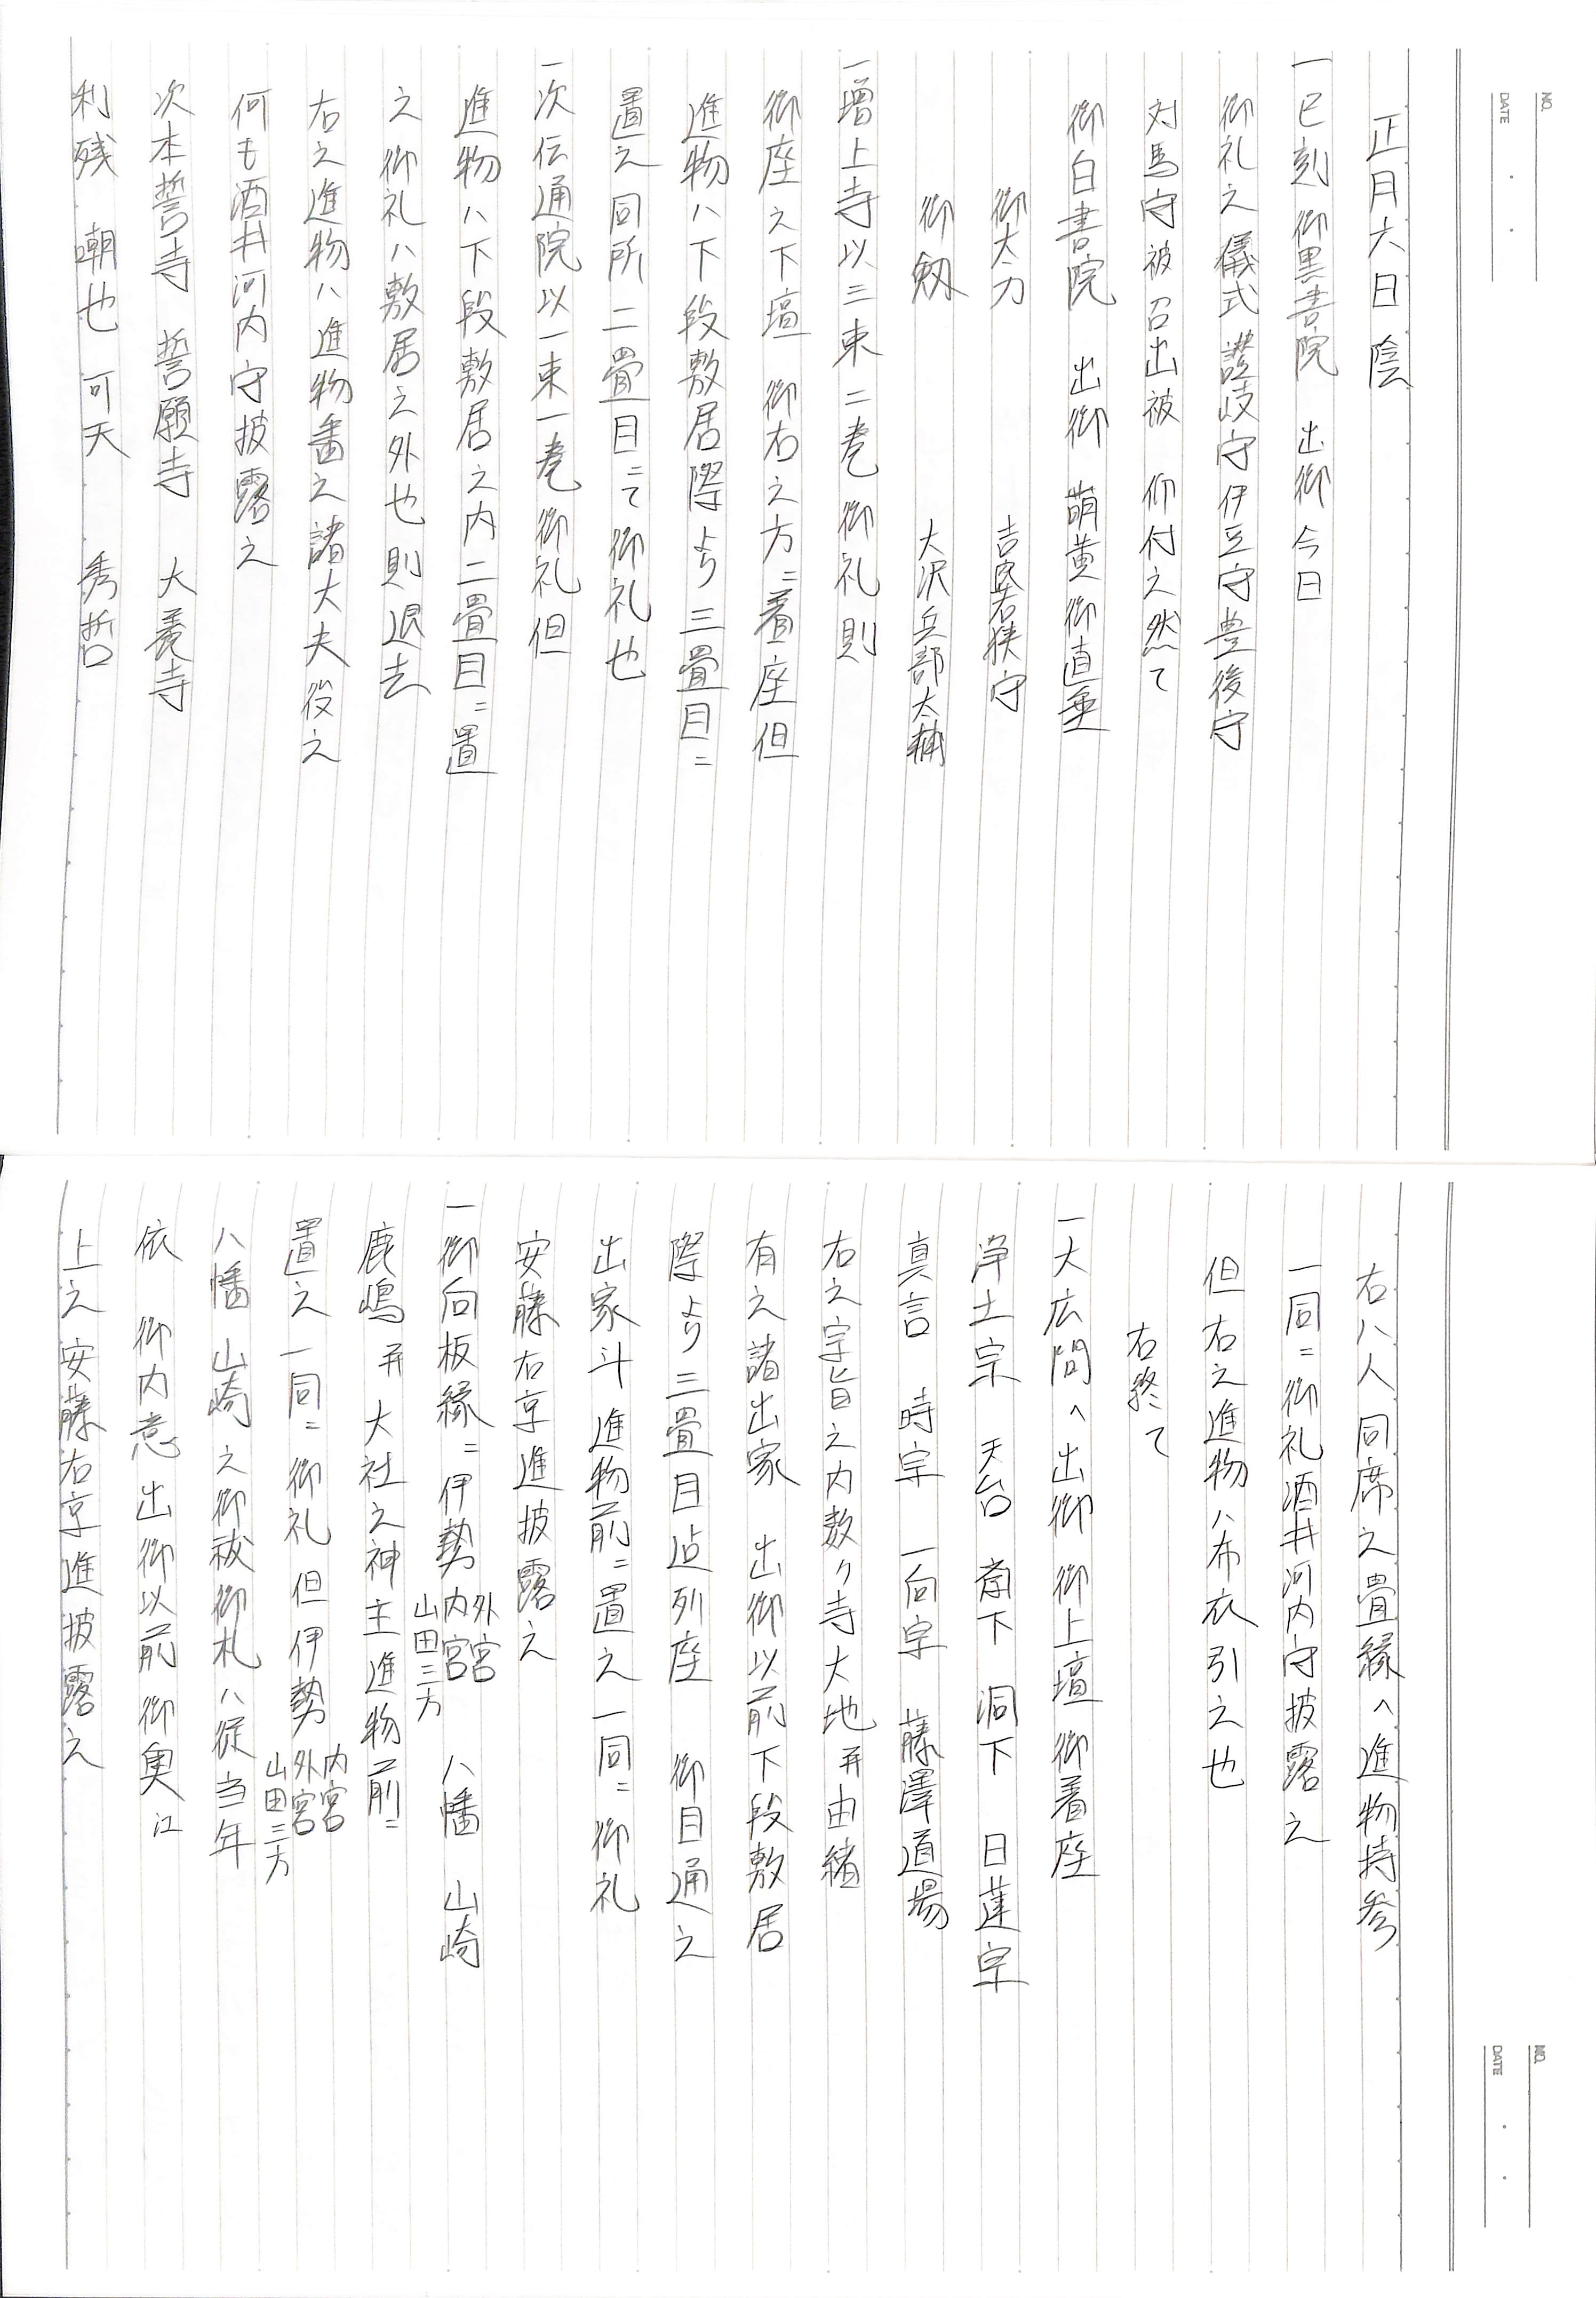 NO.
DATE ・ ・
正月六日 陰
一巳刻 御黒書院 出御 今日
御礼之儀式 讃岐守伊豆守豊後守
対馬守被召出被 仰付之然て
御白書院 出御 萌黄御直垂
御太刀 吉良若狭守
御劔 大沢兵部太輔
一増上寺以三束二巻御礼則
御座之下壇 御右之方ニ着座但
進物ハ下段敷居際より三畳目ニ
置之同所二畳目ニて御礼也
一次伝通院以一束一巻御礼但
進物ハ下段敷居之内二畳目ニ置
之御礼ハ敷居之外也則退去
右之進物ハ進物番之諸大夫役之
何も酒井河内守披露之
次本誓寺 誓願寺 大養寺
利残 嘲也 可天 秀哲
NO.
DATE ・ ・
右八人同席之畳縁へ進物持参
一同ニ御礼酒井河内守披露之
但右之進物ハ布衣引之也
右終て
一大広間へ出御 御上壇御着座
浄土宗 天台 斎下 洞下 日蓮宗
真言 時宗 一向宗 藤澤道場
右之宗旨之内数ケ寺大地并由緒
有之諸出家 出御以前下段敷居
際より三畳目迠列座 御目通之
出家斗進物前ニ置之一同ニ御礼
安藤右京進披露之
一御向板縁ニ伊勢 外宮 内宮 山田三方 八幡 山崎
鹿嶋并大社之神主進物前ニ
置之一同ニ御礼但伊勢 内宮 外宮 山田三方
八幡 山崎之御祓御札ハ従当年
依 御内意出御以前御奥江
上之安藤右京進披露之